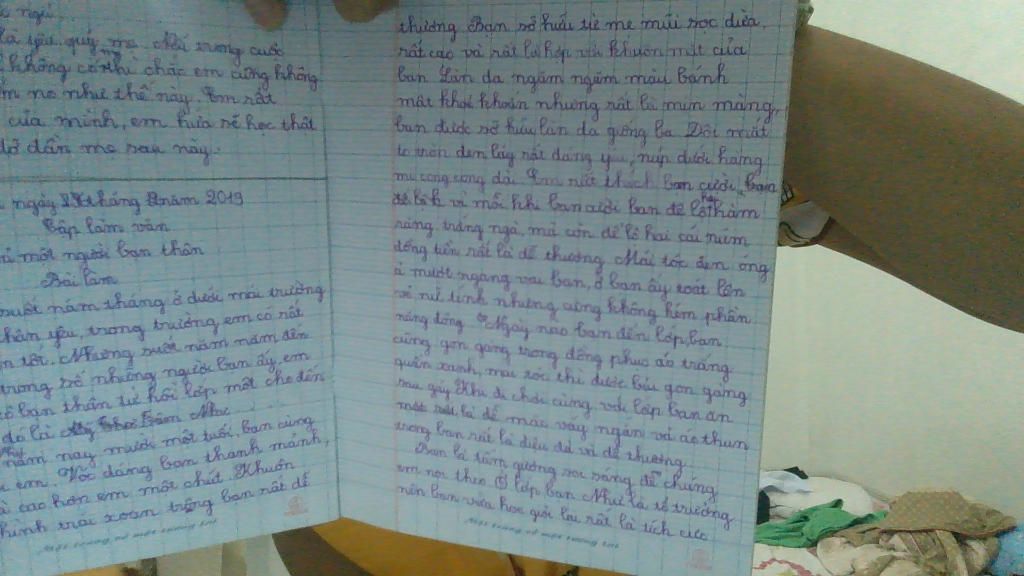 là yêu quý mẹ. Nếu trong cuộc
không có mẹ thì chắc em cũng không
no như thế này. Em rất
của mình, em hứa sẽ học thật
đỡ dần mẹ sau này.
ngày tháng năm 2019
Tập làm văn
một người bạn thân
Bài làm
suốt năm tháng ở dưới mái trường
thân yêu, trong trường, em có rất
tốt. Nhưng suốt năm năm đến
trong số những người bạn ấy, em
bạn thân từ hồi lớp một cho đến
đó là Trâm Như
năm nay mười một tuổi, bạn cùng
em. Vóc dáng bạn thanh mảnh,
cao hơn em một chút. Khuôn
hình trái xoan trông bạn rất dễ
Một trang vở một tương lai
thương. Bạn sở hữu từ mẹ mũi sọc dừa,
rất cao và rất là hợp với khuôn mặt của
bạn. Làn da ngăm ngăm màu bánh
mật khoẻ khoắn nhưng rất là mịn màng,
bạn được sở hữu làn da giống ba. Đôi mắt
to tròn đen láy rất đáng yêu, núp dưới hàng
mi cong cong dài. Em rất thích bạn cười, bạn
vì mỗi khi bạn cười bạn để lộ hai hàm
răng trắng ngà, mà còn để lộ hai cái núm
đồng tiền rất là dễ thương. Mái tóc đen óng
ả mượt ngang vai bạn, ở bạn ấy toát lên
vẻ nữ tính nhưng cũng không kém phần
năng động. Ngày nào bạn đến lớp, bạn
cũng gọn gàng trong đồng phục áo trắng
quần xanh, mái tóc thì được búi gọn gàng
sau gáy. Khi đi chơi cùng với lớp bạn ăn
là để màu váy ngắn và áo thun
trông bạn rất là điệu đà và dễ thương.
Bạn là tấm gương soi sáng để chúng
em noi theo. Ở lớp bạn Như là tổ trưởng
nên bạn vừa học giỏi lại rất là tích cực
Một trang vở một tương lai